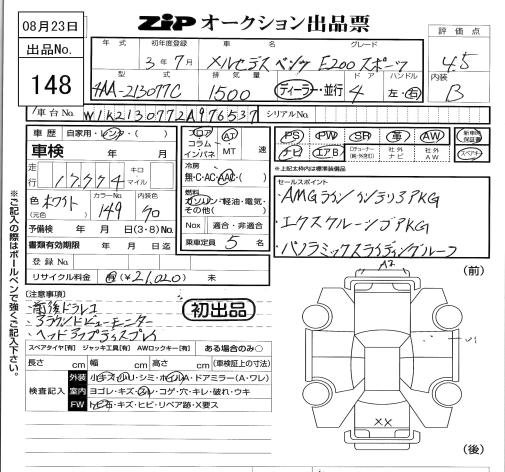 08月23日
ZIP オークション出品票
出品No.
148
年式 初年度登録 車名 グレード
3年7月 メルセデス ベンツ E200 スポーツ
型式 排気量 ドア ハンドル
4AA-213077C 1500 ディーラー・並行 4 左・右
評価点
4.5
内装
B
車台No. W1K2130772A976537 シリアルNo.
車歴 自家用・レンタ・( )
車検 年 月
走行 17,774 キロ マイル
色 ホワイト (元色) カラーNo. 149 内装色 70
予備検 年 月 日(3・8)No.
書類有効期限 年 月 日迄
登録No.
リサイクル料金 有(¥21,020) 未
フロア コラム インパネ AT MT 速
冷房 無・C・AC・AAC・( )
燃料 ガソリン・軽油・電気・その他( )
Nox 適合・非適合
乗車定員 5 名
PS PW SR 革 AW 新車時保証書
ナビ エアB TVチューナー 社外ナビ 社外AW スペアキー
※上記太枠内は標準装備品
セールスポイント
・AMGライン インテリアPKG
・エクスクルーシブPKG
・パノラミックスライディングルーフ
初出品
[注意事項]
・前後ドラレコ
・アラウンドビューモニター
・ヘッドアップディスプレイ
スペアタイヤ[有] ジャッキ工具[有] AWロックキー[有] ある場合のみ○
長さ cm 幅 cm 高さ cm (車検証上の寸法)
検査記入 外装 小キズ・小凹・シミ・ホイルA・ドアミラー(A・ワレ)
室内 ヨゴレ・キズ・スレ・コゲ・穴・キレ・破れ・ウキ
FW トビ石・キズ・ヒビ・リペア跡・X要ス
※ご記入の際はボールペンで強くご記入下さい。
(前)
A2
XX
(後)